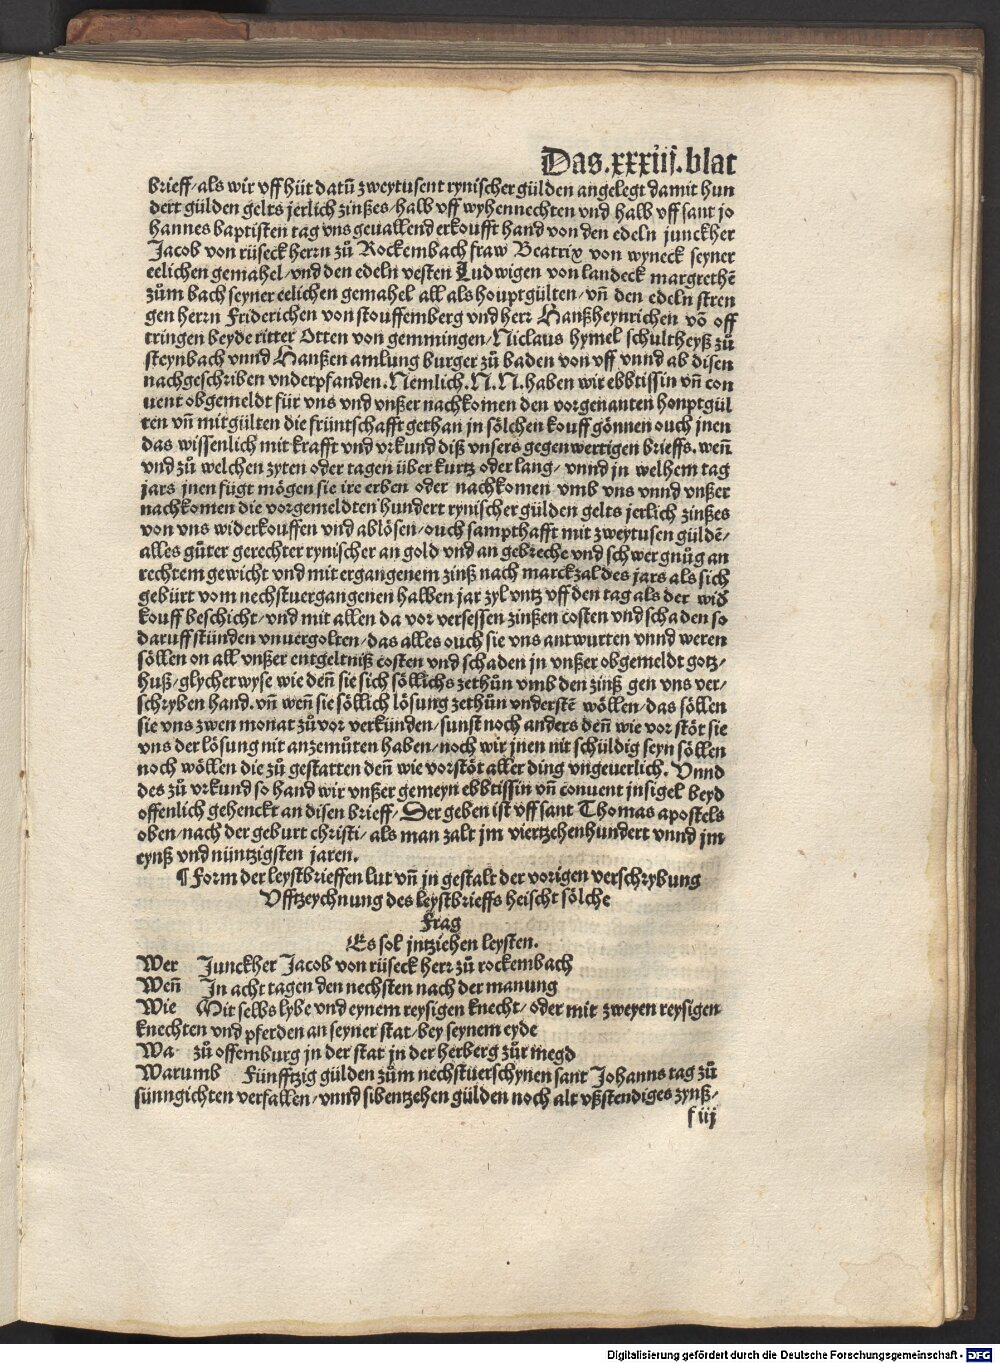 Das .xxxiij. blat
brieff/als wir vff hüt datū zweytusent rynischer gülden angelegt damit hun
dert gülden gelts jerlich zinßes/halb vff wyhennechten vnd halb vff sant jo
hannes baptisten tag vns geuallend erkoufft hand von den edeln junckher
Jacob von rüseck herrn zů Rockembach fraw Beatrix von wyneck seyner
eelichen gemahel/vnd den edeln vesten Ludwigen von landeck margrethē
zům bach seyner eelichen gemahel all als houptgülten/vn̄ den edeln stren
gen herrn Friderichen von stouffemberg vnd herr Hanßheynrichen vō off
tringen beyde ritter Otten von gemmingen/Niclaus hymel schultheyß zů
steynbach vnnd Hanßen amlung burger zů baden von vff vnnd ab disen
nachgeschriben vnderpfanden.Nemlich.N.N.haben wir ebbtissin vn̄ con
uent obgemeldt für vns vnd vnßer nachkomen den vorgenanten honptgül
ten vn̄ mitgülten die früntschafft gethan jn sölchen kouff gönnen ouch jnen
das wissenlich mit krafft vnd vrkund diß vnsers gegenwertigen brieffs. wen̄
vnd zů welchen zyten oder tagen über kurtz oder lang/vnnd jn welhem tag
jars jnen fügt mögen sie ire erben oder nachkomen vmb vns vnnd vnßer
nachkomen die vorgemeldten hundert rynischer gülden gelts jerlich zinßes
von vns widerkouffen vnd ablösen/ouch sampthafft mit zweytusen güldē/
alles gůter gerechter rynischer an gold vnd an gebreche vnd schwer gnůg an
rechtem gewicht vnd mit ergangenem zinß nach marckzal des jars als sich
gebürt vom nechstuergangenen halben jar zyl vntz vff den tag als der wid
kouff beschicht/vnd mit allen da vor versessen zinßen costen vnd schaden so
daruff stünden vnuergolten/das alles ouch sie vns antwurten vnnd weren
söllen on all vnßer entgeltniß costen vnd schaden jn vnßer obgemeldt gotz/
huß/glycher wyse wie den̄ sie sich söllichs zethůn vmb den zinß gen vns ver/
schryben hand.vn̄ wen̄ sie söllich lösung zethůn vnderstē wöllen/das söllen
sie vns zwen monat zůvor verkünden/sunst noch anders den̄ wie vor stöt sie
vns der lösung nit anzemůten haben/noch wir jnen nit schüldig seyn söllen
noch wöllen die zů gestatten den̄ wie vorstöt aller ding vngeuerlich. Vnnd
des zů vrkund so hand wir vnßer gemeyn ebbtissin vn̄ conuent jnsigel beyd
offenlich gehenckt an disen brieff/Der geben ist vff sant Thomas apostels
oben/nach der geburt christi/als man zalt jm viertzehenhundert vnnd jm
eynß vnd nüntzigsten jaren.
¶ Form der leystbrieffen lut vn̄ jn gestalt der vorigen verschrybung
Vfftzeychnung des leystbrieffs heischt sölche
Frag
Es sol jntziehen leysten.
Wer Junckher Jacob von rüseck herr zů rockembach
Wen̄ In acht tagen den nechsten nach der manung
Wie Mit selbs lybe vnd eynem reysigen knecht/oder mit zweyen reysigen
knechten vnd pferden an seyner stat/bey seynem eyde
Wa zů offemburg jn der stat jn der herberg zůr megd
Warumb Fünfftzig gülden zům nechstuerschynen sant Johanns tag zů
sünngichten verfallen/vnnd sibentzehen gülden noch alt vßstendiges zynß/
f iij
Digitalisierung gefördert durch die Deutsche Forschungsgemeinschaft - DFG